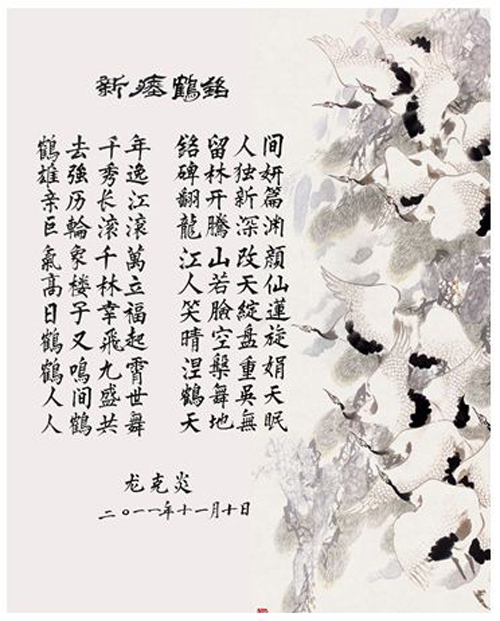 新瘞鶴銘
鶴去千年 銘留人间
雄強秀逸 碑林独妍
亲历长江 翻开新篇
巨輪滚滚 龍騰深渊
氣象千萬 江山改颜
高楼林立 人若天仙
日子幸福 笑臉綻蓮
鶴又飛起 晴空盘旋
鶴鳴九霄 涅槃重娟
人间盛世 鶴舞吴天
人鶴共舞 天地無眠
龙克炎
二〇一一年十一月十日